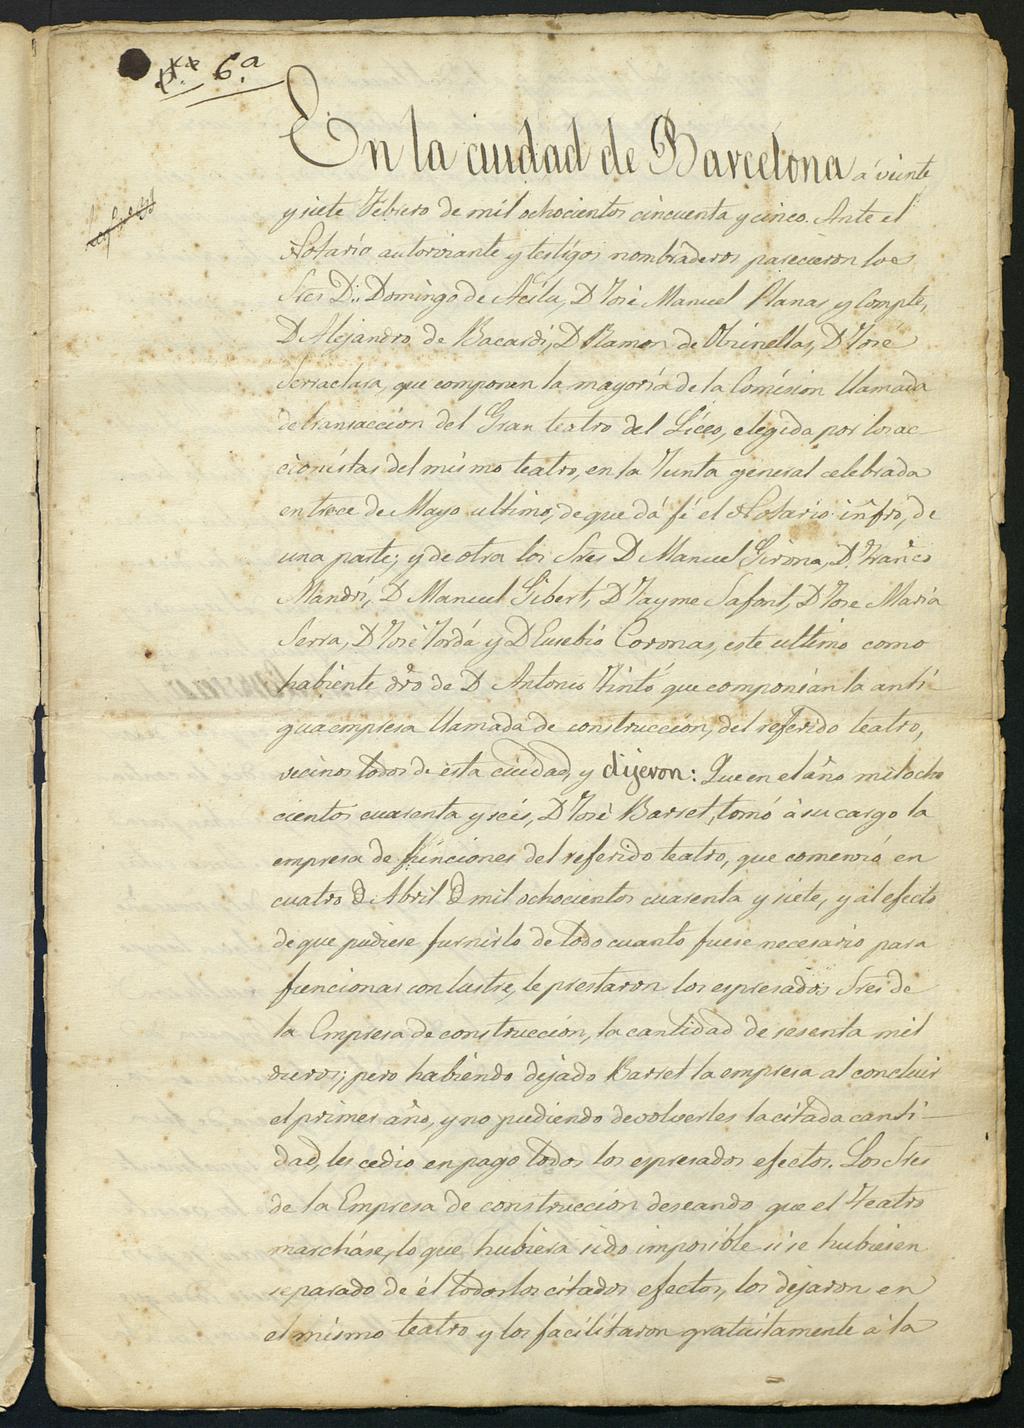 6.a
En la ciudad de Barcelona a veinte
y siete Febrero de mil ochocientos cincuenta y cinco. Ante el
Notario autorizante y testigos nombraderos parecieron los
Sres D.n Domingo de Acilu, D José Manuel Planas y Compte,
D Alejandro de Bacardi, D Ramon de Vbinellas, D José
Serraclara, que componen la mayoría de la Comision llamada
de transaccion del Gran teatro del Liceo, elegida por los ac-
cionistas del mismo teatro, en la Junta general celebrada
en trece de Mayo ultimo, de que dá fé el Notario infro, de
una parte; y de otra los Sres D Manuel Girona, D. Franco
Mandri, D Manuel Gibert, D Jayme Safont, D Jose Maria
Serra, D José Jordá y D Eusebio Coronas, este ultimo como
habiente dro de D Antonio Tintó que componian la anti-
gua empresa llamada de construccion, del referido teatro,
vecinos todos de esta ciudad, y dijeron: Que en el año mil ocho
cientos cuarenta y seis, D José Barret, tomó á su cargo la
empresa de funciones del referido teatro, que comenzó en
cuatro de Abril de mil ochocientos cuarenta y siete, y al efecto
de que pudiese furnirlo de todo cuanto fuese necesario para
funcionar con lustre, le prestaron los espresados Sres de
la Empresa de construccion, la cantidad de sesenta mil
duros; pero habiendo dejado Barret la empresa al concluir
el primer año, y no pudiendo devolverles la citada canti-
dad, les cedio en pago todos los espresados efectos. Los Sres
de la Empresa de construccion deseando que el Teatro
marcháse, lo que hubiera sido imposible si se hubiesen
separado de él todos los citados efectos, los dejaron en
el mismo teatro y los facilitaron gratuitamente á la